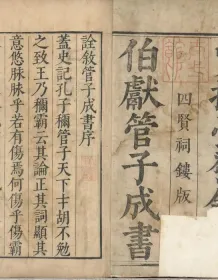 四賢祠鏤版
伯獻管子成書
詮敘管子成書序
蓋史記孔子穪管子天下才胡不勉
之致王乃穪霸云其論正其詞顯其
意悠脉脉乎若有傷焉何傷乎傷霸